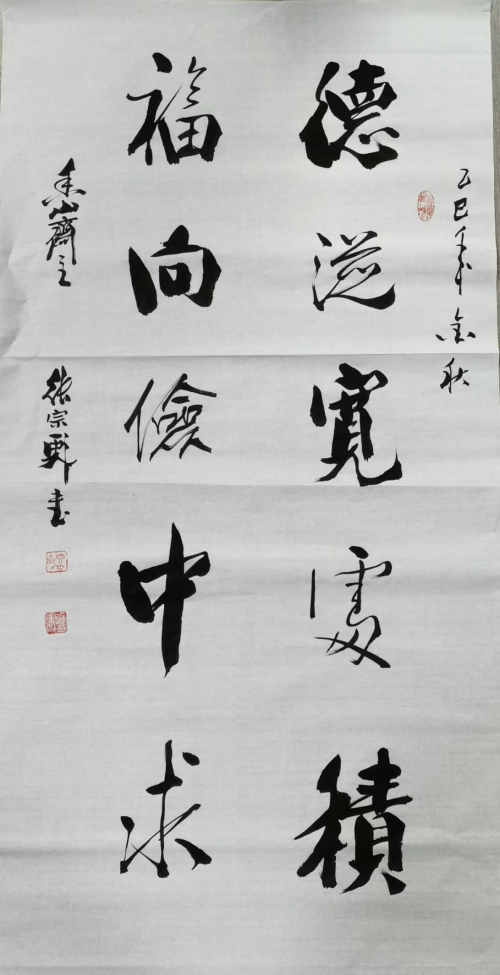 乙巳年金秋
德從寬處積
福向儉中求
香山齋主
張宗書